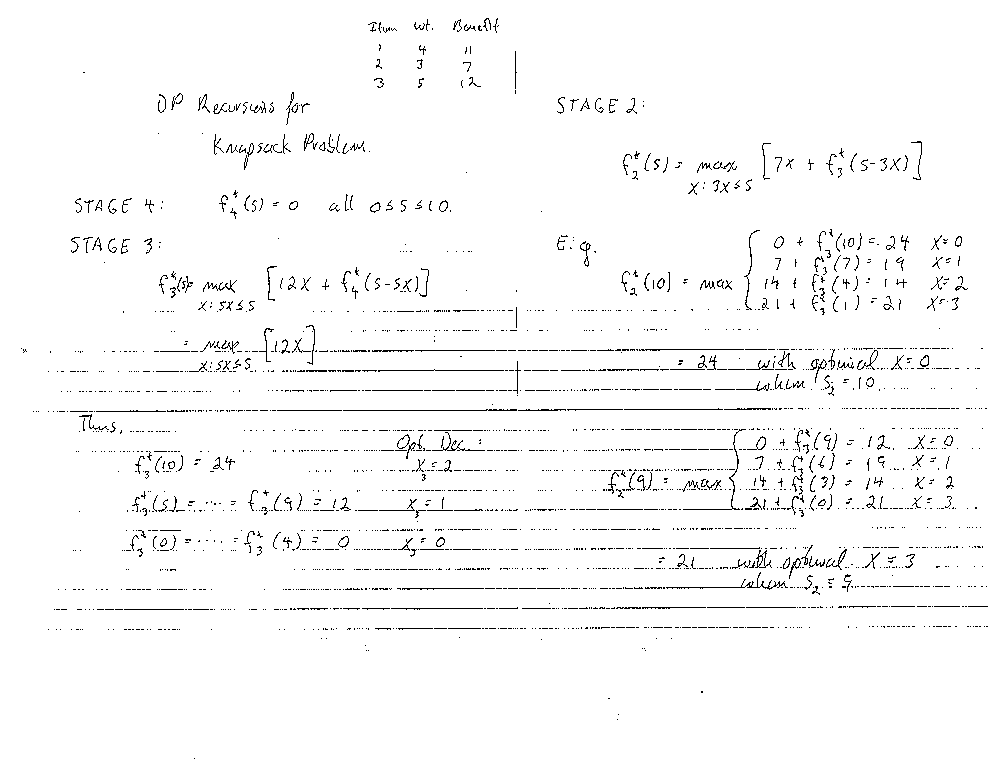 Item Wt. Benefit
1 4 11
2 3 7
3 5 12
DP Recursions for
Knapsack Problem.
STAGE 4: f₄*(s) = 0 all 0≤s≤10.
STAGE 3:
f₃*(s)= max [12X + f₄*(s-5X)]
X: 5X≤s
= max [12X]
X: 5X≤s
Thus,
Opt. Dec.:
f₃*(10) = 24 X₃ = 2
f₃*(5) = ... = f₃*(9) = 12 X₃ = 1
f₃*(0) = ..... = f₃*(4) = 0 X₃ = 0
STAGE 2:
f₂*(s) = max [7X + f₃*(s-3X)]
X: 3X≤s
E.g.
0 + f₃*(10) = 24 X=0
7 + f₃*(7) = 19 X=1
f₂*(10) = max { 14 + f₃*(4) = 14 X=2
21 + f₃*(1) = 21 X=3
= 24 with optimal X=0
when S₂ = 10
0 + f₃*(9) = 12 X=0
7 + f₃*(6) = 19 X=1
f₂*(9) = max { 14 + f₃*(3) = 14 X=2
21 + f₃*(0) = 21 X=3
= 21 with optimal X=3
when S₂ = 9